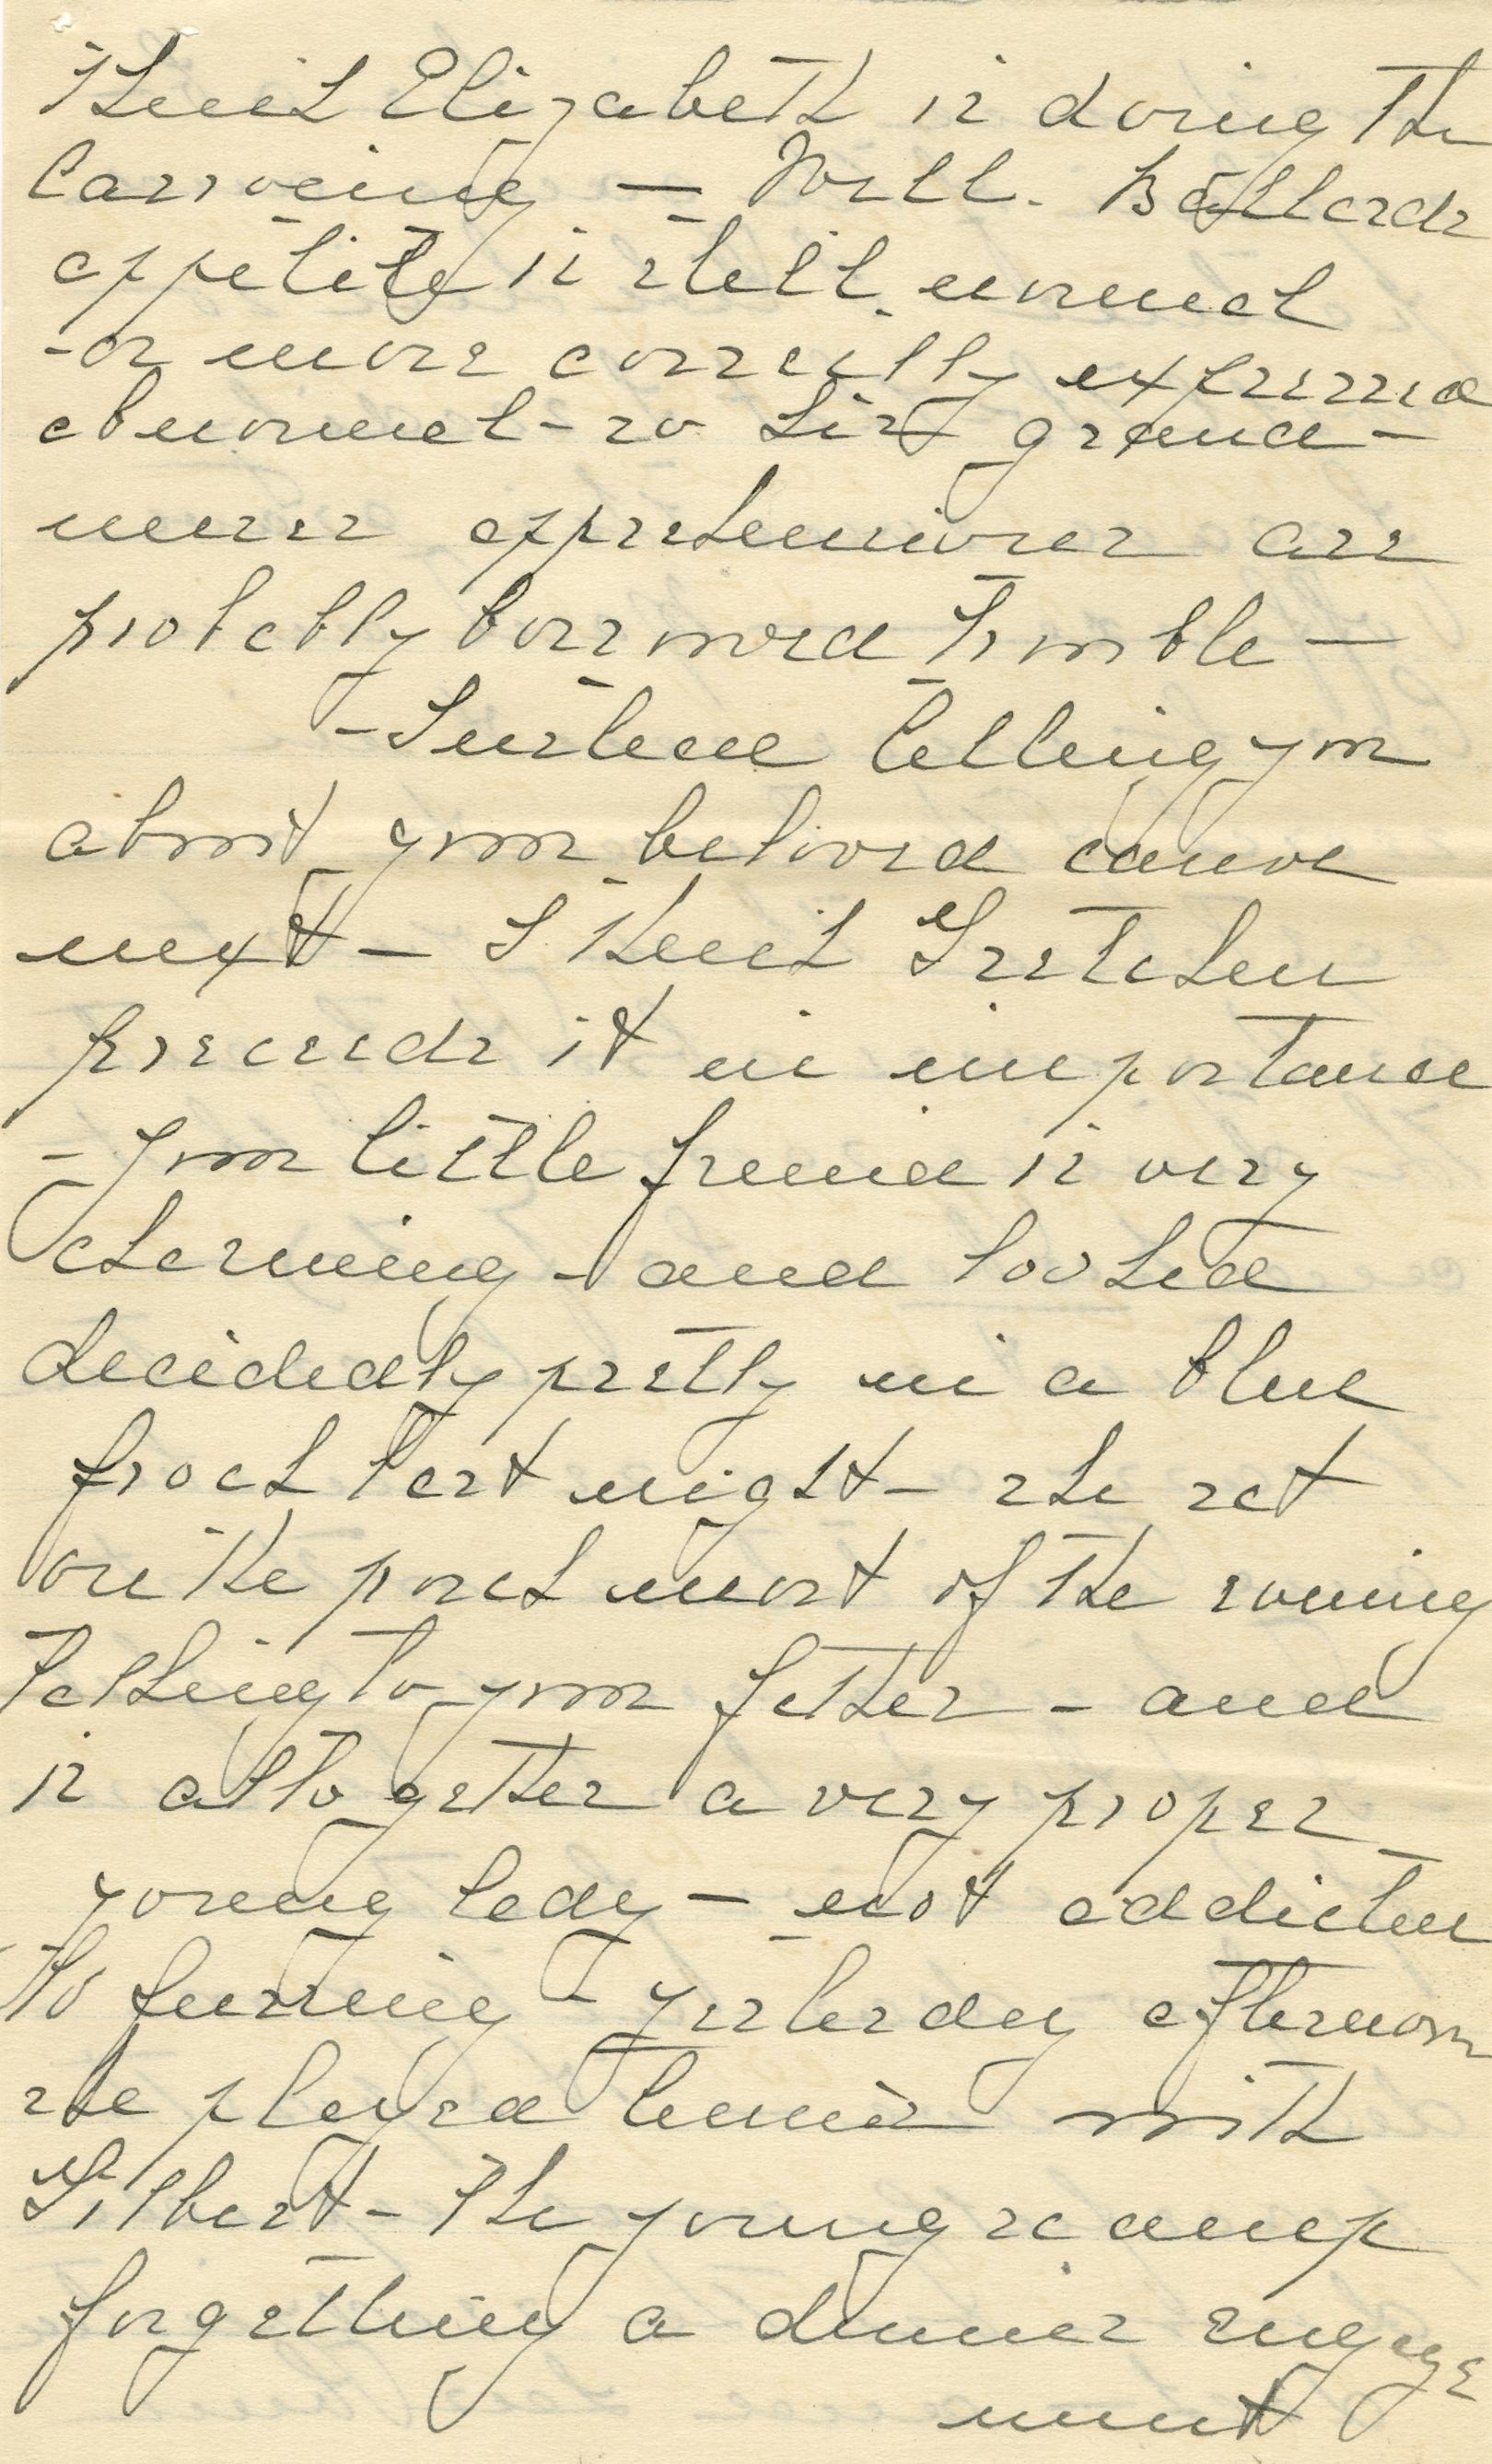 think Elizabeth is doing the
carroeing — Will. Ballards
appetite is still normal
- or more correctly expressed
abnormal - so his grand-
meres apprehensions are
probably borrowed trouble —
- Instead telling you
about your beloved canoe
next - I think Gretchen
preceeds it in importance
- Your little friend is very
charming - and looked
decidedly pretty in a blue
frock last night - she sat
on the porch most of the evening
talking to your father - and
is altogether a very proper
young lady - not addicted
to fussing - yesterday afternoon
she played tennis with
Gilbert - the young scamp
forgetting a dinner engage
ment